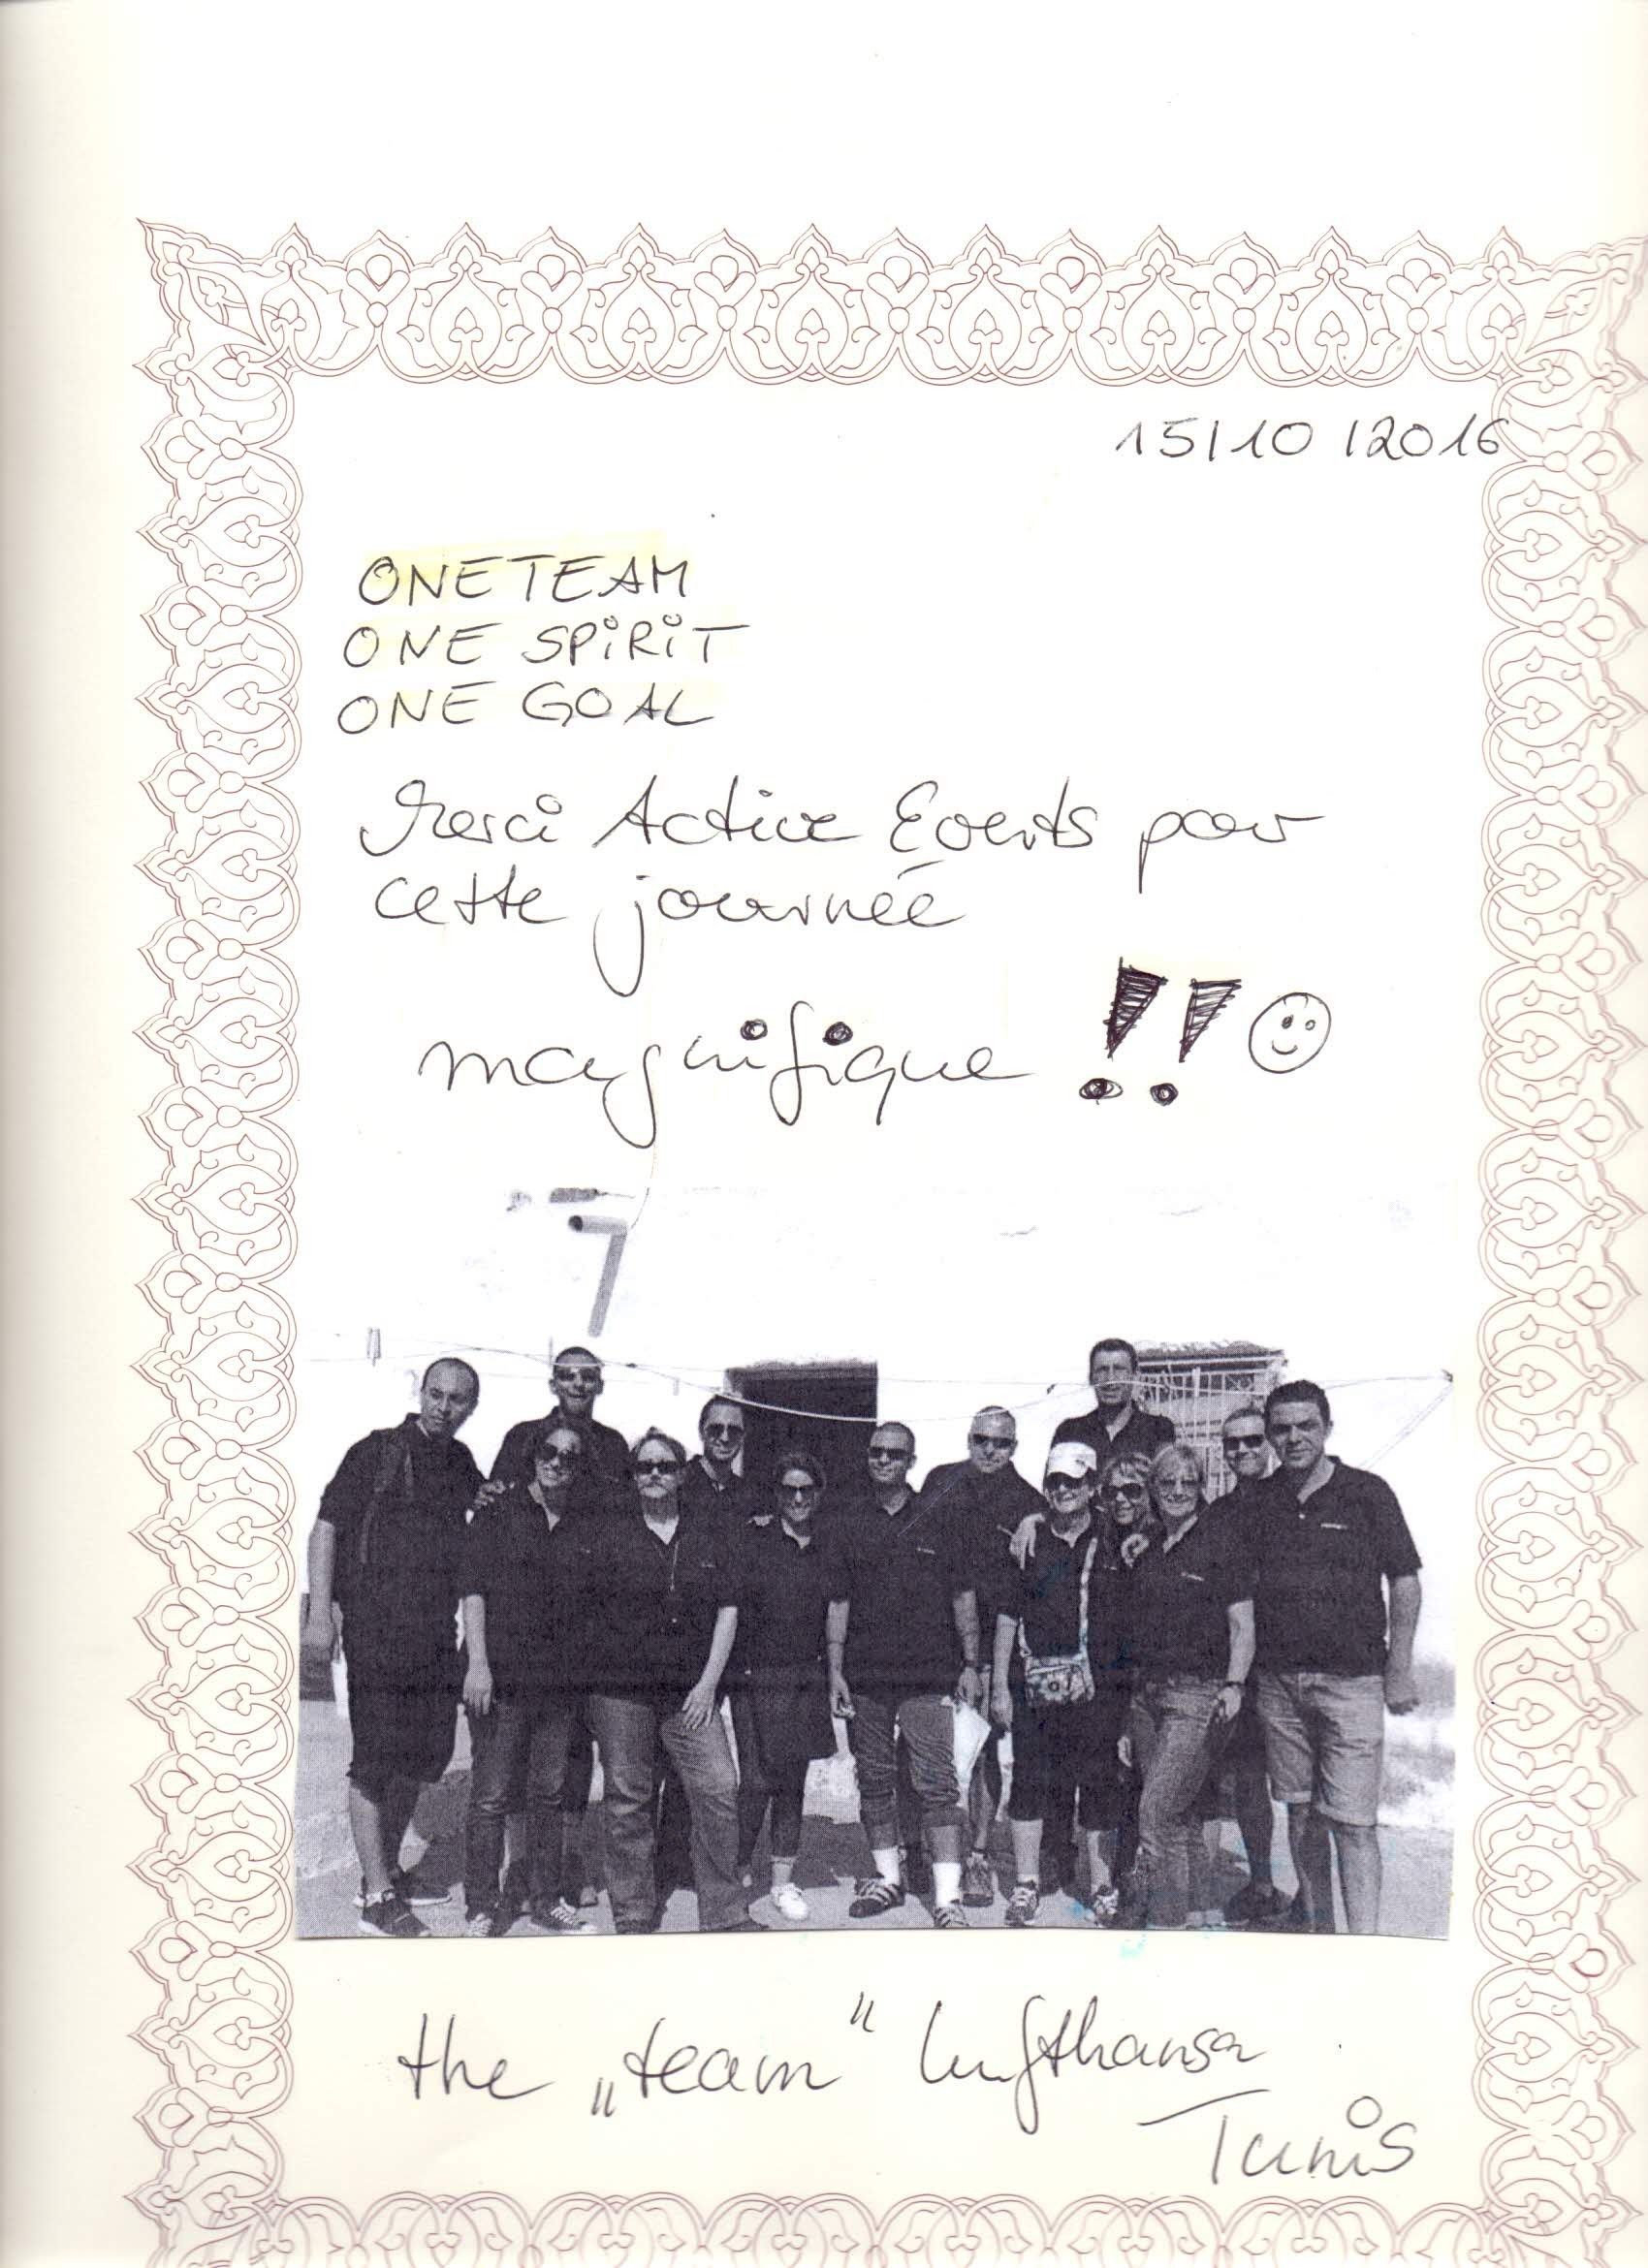 15/10/2016
ONE TEAM
ONE SPiRiT
ONE GOAL
Merci Active Events pour
cette journée
magnifique !! ☺
the „team" Lufthansa
Tunis